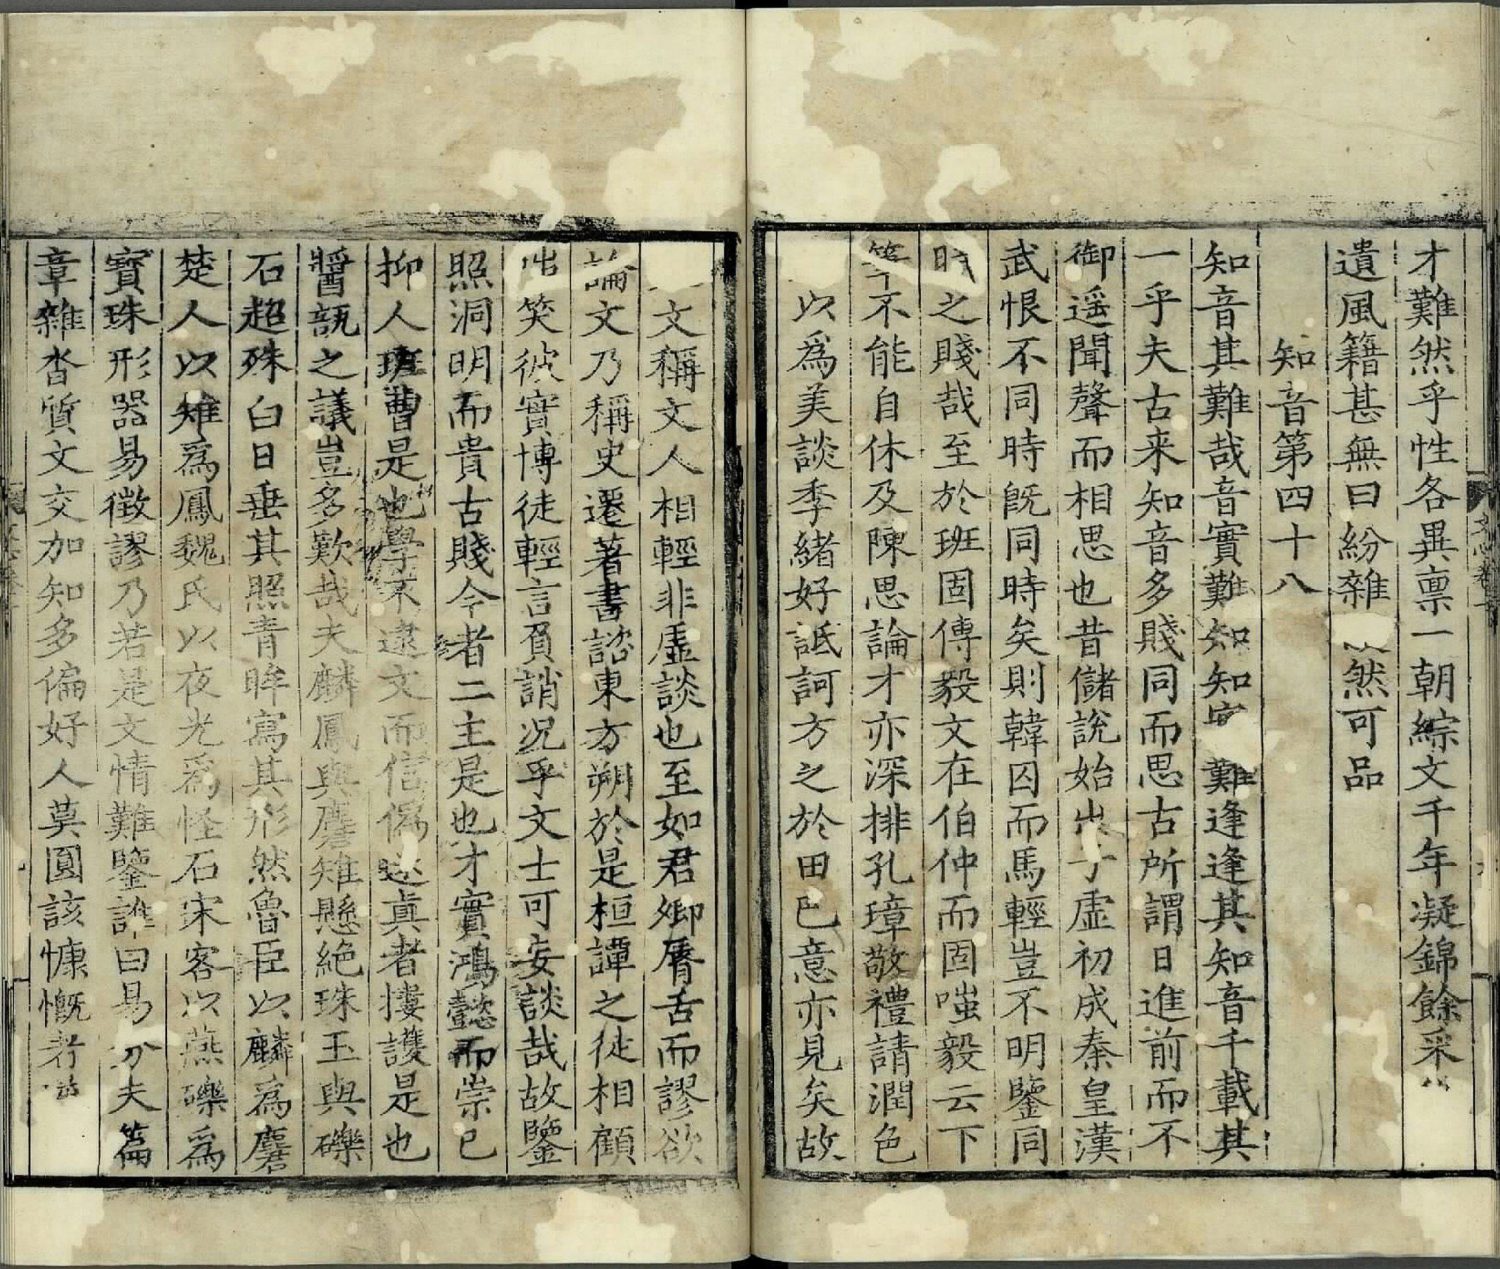 才難然乎性各異禀一朝綜文千年凝錦餘采
遺風籍甚無曰紛雜然可品
知音第四十八
知音其難哉音實難知知難逢逢其知音千載其
一乎夫古来知音多賤同而思古所謂日進前而不
御遥聞聲而相思也昔儲說始出子虛初成秦皇漢
武恨不同時旣同時矣則韓囚而馬輕豈不明鑒同
時之賤哉至於班固傅毅文在伯仲而固嗤毅云下
筆不能自休及陳思論才亦深排孔璋敬禮請潤色
以爲美談季緒好詆訶方之於田巴意亦見矣故
文稱文人相輕非虛談也至如君卿脣舌而謬欲
論文乃稱史遷著書諮東方朔於是桓譚之徒相顧
嗤笑彼實博徒輕言負誚况乎文士可妄談哉故鑒
照洞明而貴古賤今者二主是也才實鴻懿而崇已
抑人班曹是也學不逮文而信僞迷眞者摟護是也
醬瓿之議豈多歎哉夫麟鳳與麏雉懸絶珠玉與礫
石超殊白日垂其照青眸寫其形然魯臣以麟爲麏
楚人以雉爲鳳魏氏以夜光爲怪石宋客以燕礫爲
寳珠形器易徵謬乃若是文情難鑒誰曰易分夫篇
章雜沓質文交加知多偏好人莫圓該慷慨者
文心卷十